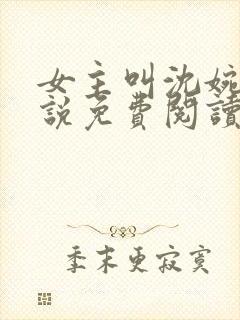 女主叫沈婉
說免費閱讀
季末更寂寞